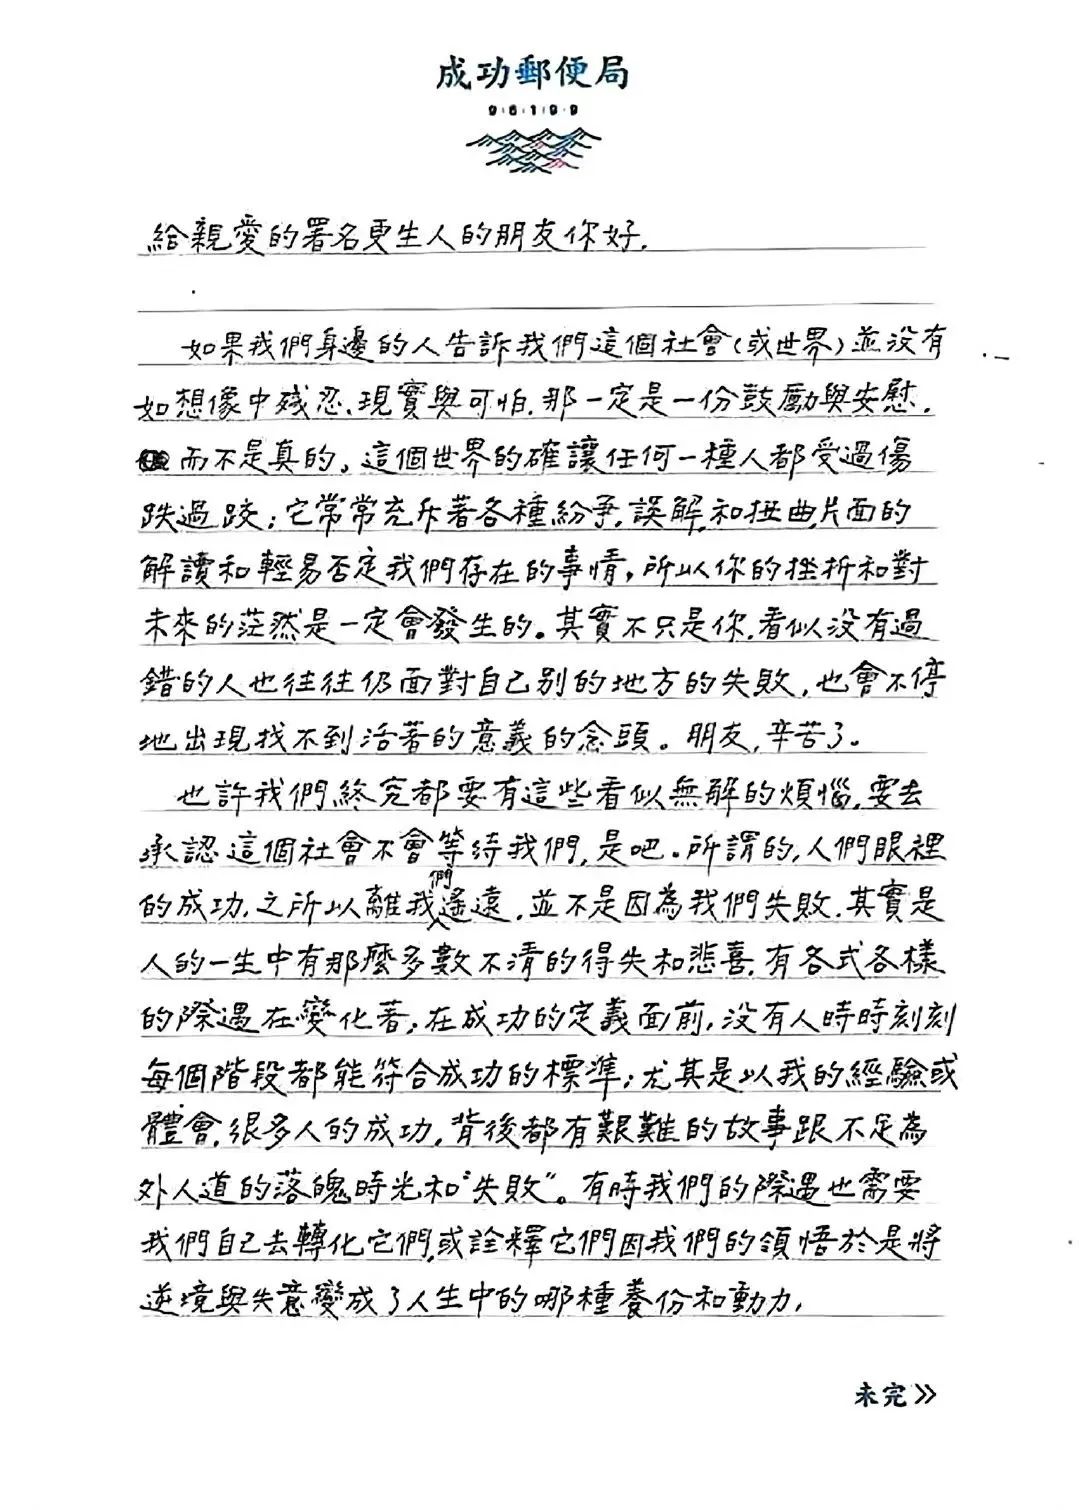 成功郵便局
96199
給親愛的署名更生人的朋友你好.
如果我們身邊的人告訴我們這個社會(或世界)並没有
如想像中殘忍、現實與可怕.那一定是一份鼓勵與安慰.
而不是真的。這個世界的確讓任何一種人都受過傷
跌過跤;它常常充斥著各種紛爭.誤解.和扭曲.片面的
解讀和輕易否定我們存在的事情,所以你的挫折和對
未來的茫然是一定會發生的。其實不只是你.看似没有過
錯的人也往往仍面對自己别的地方的失敗,也會不停
地出現找不到活著的意義的念頭。朋友,辛苦了。
也許我們終究都要有這些看似無解的煩惱.要去
承認這個社會不會等待我們,是吧。所謂的,人們眼裡
的成功.之所以離我們遙遠.並不是因為我們失敗.其實是
人的一生中有那麼多數不清的得失和悲喜.有各式各樣
的際遇在變化著,在成功的定義面前,没有人時時刻刻
每個階段都能符合成功的標準;尤其是以我的經驗或
體會.很多人的成功,背後都有艱難的故事跟不足為
外人道的落魄時光和“失敗”。有時我們的際遇也需要
我們自己去轉化它們,或詮釋它們因我們的領悟於是將
逆境與失意變成了人生中的哪種養份和動力,
未完»